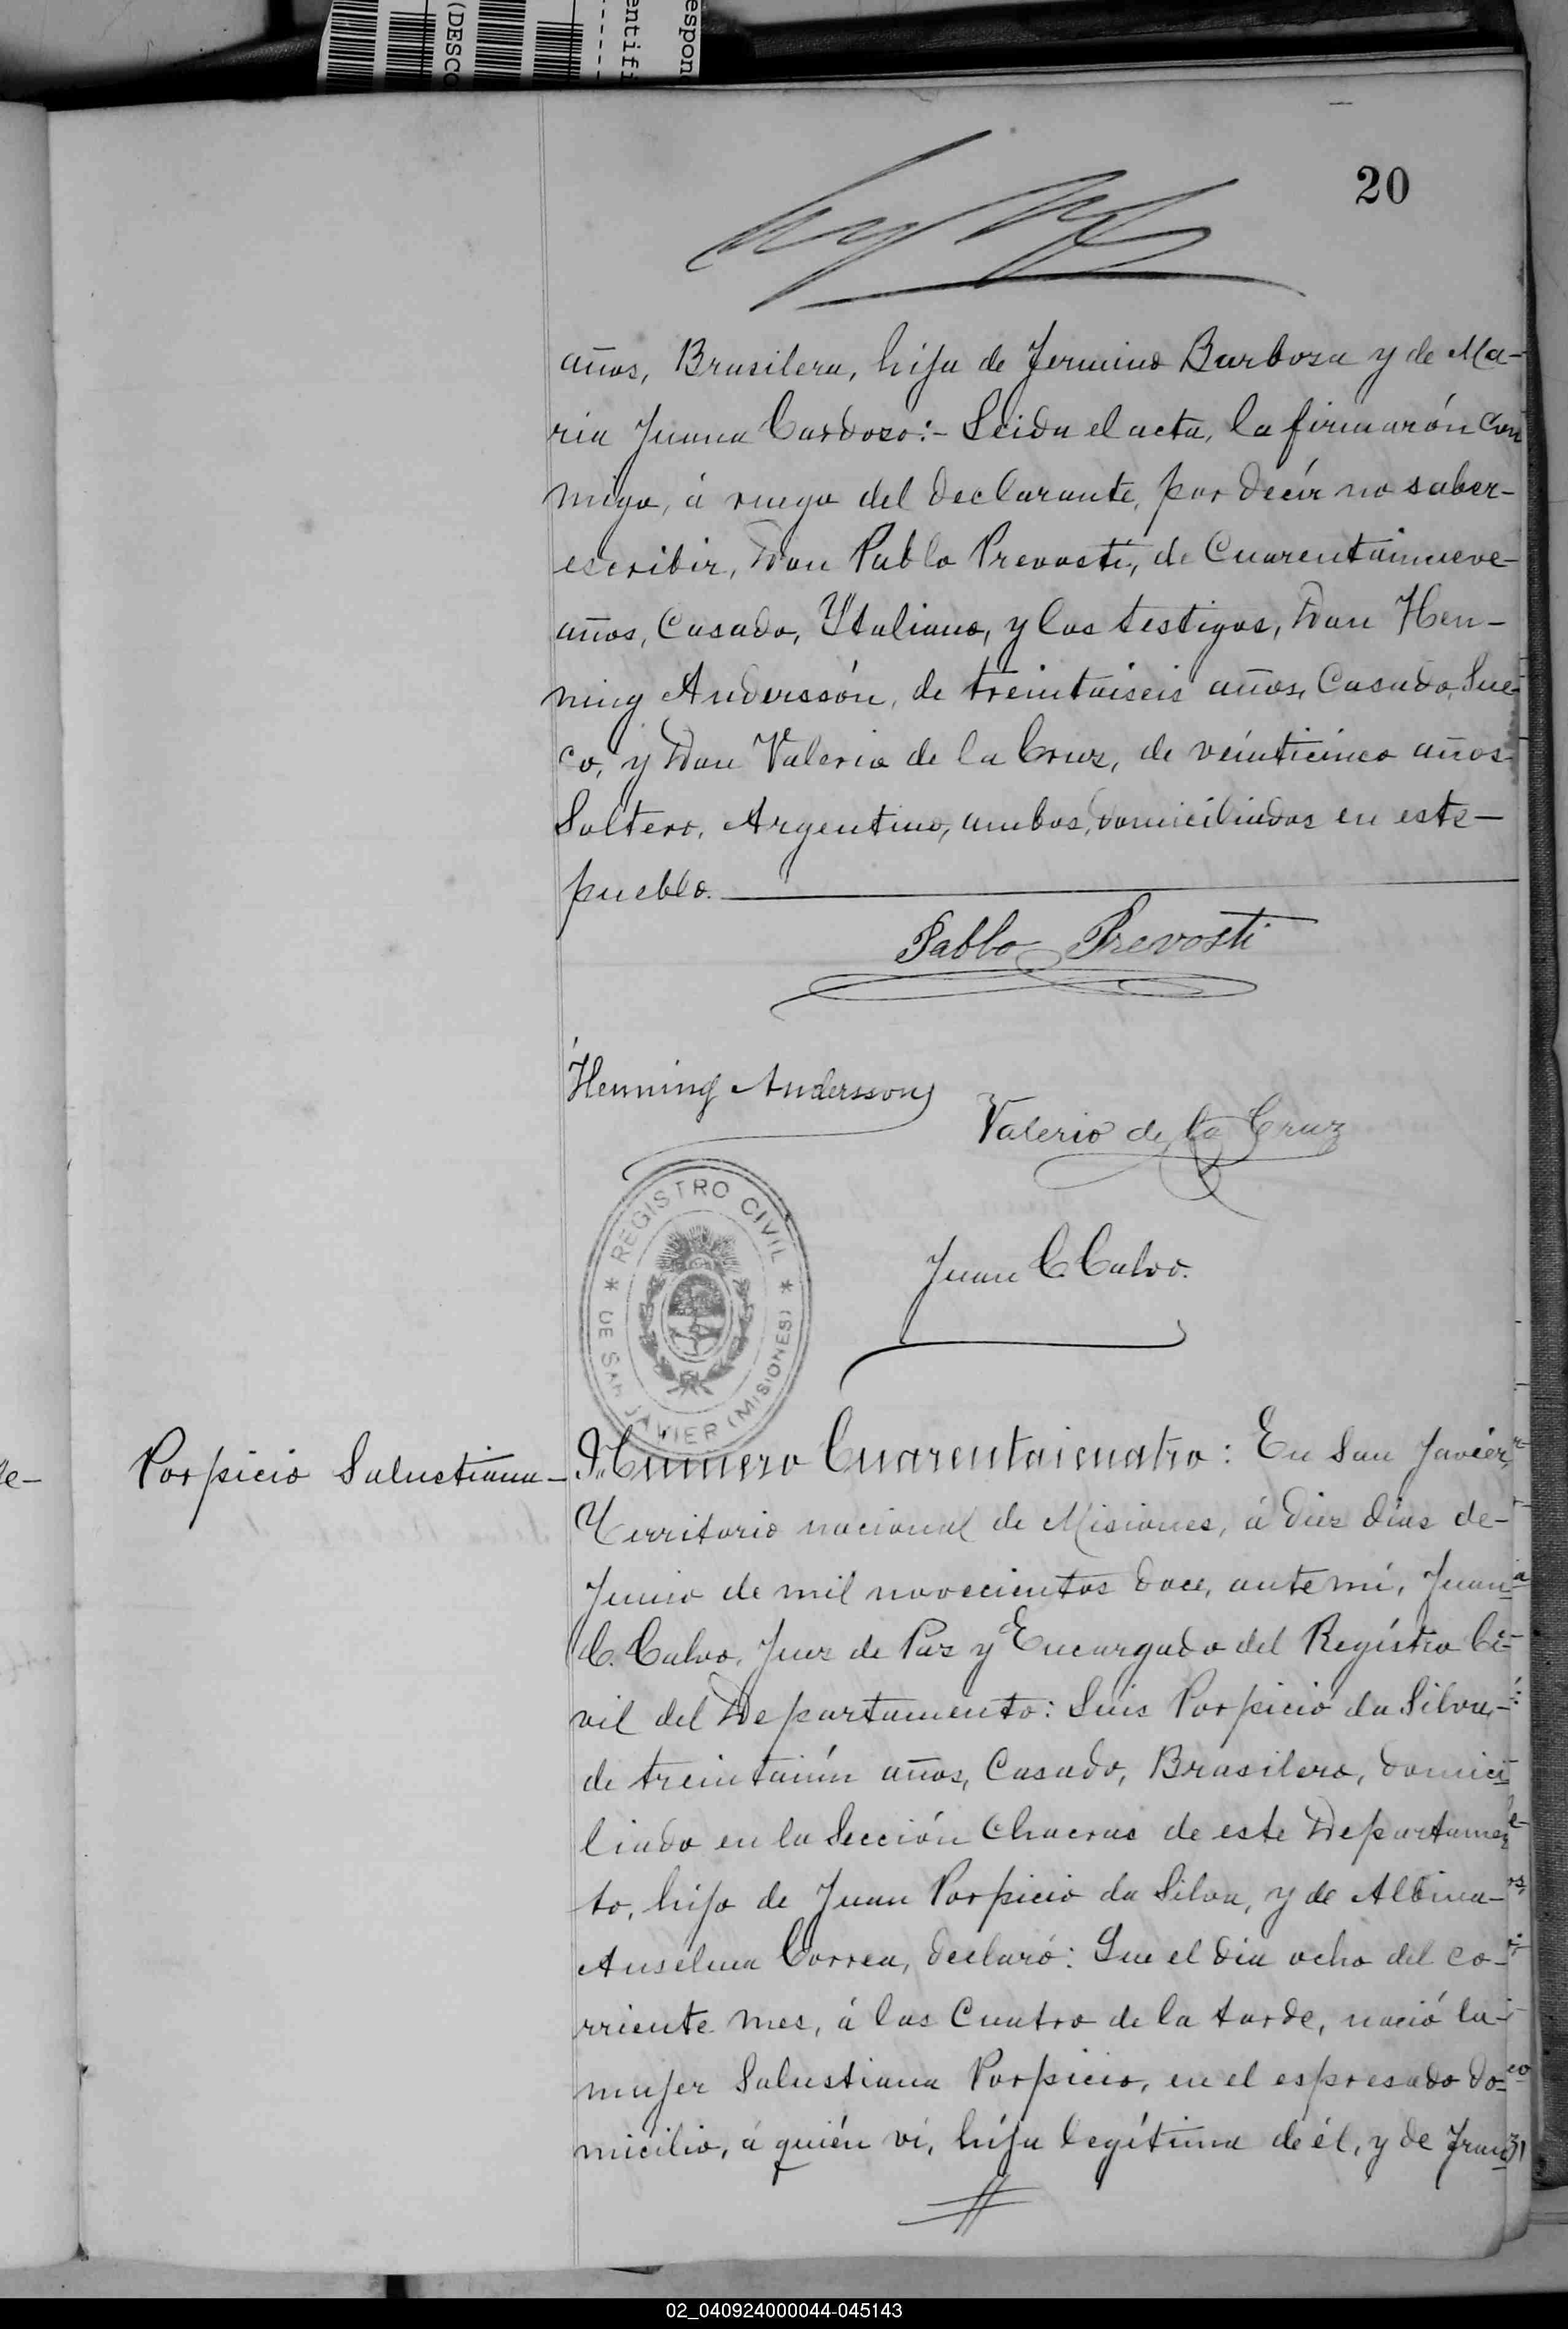 (DESCO
entifi
espon
20
años, Brasilera, hija de Jermino Barbosa y de Ma-
ria Juana Cardozo:- Leida el acta, la firmarón con
migo, á ruego del declarante, por decír no saber-
escribir, Don Pablo Prevosti, de Cuarentainueve-
años, Casado, Ytaliano, y los testigos, Don Hen-
ning Anderssón, de treintaiseis años, Casado, Sue-
co, y Don Valerio de la Cruz, de veinticinco años
Soltero, Argentino, ambos, domiciliados en este-
pueblo.
Pablo Prevosti
Henning Andersson
Valerio de la Cruz
REGISTRO CIVIL
DE SAN JAVIER (MISIONES)
Juan C. Calvo.
Porpicio Salustiana-
Numero Cuarentaicuatro: En San Javier,
Territorio nacional de Misiones, á diez días de-
Junio de mil novecientos doce, ante mí, Juan
C. Calvo, Juez de Paz y Encargado del Regístro Ci-
vil del Departamento: Luis Porpicio da Silva,-
de treintaiún años, Casado, Brasilero, domici
liado en la Sección Chacras de este Departamen
to, hijo de Juan Porpicio da Silva, y de Albina-
Anselma Correa, declaró: Que el dia ocho del co-
rriente mes, á las Cuatro de la tarde, nació la-
mujer Salustiana Porpicio, en el espresado do-
micilio, á quién ví, híja legítima de él, y de Fran
02_040924000044-045143